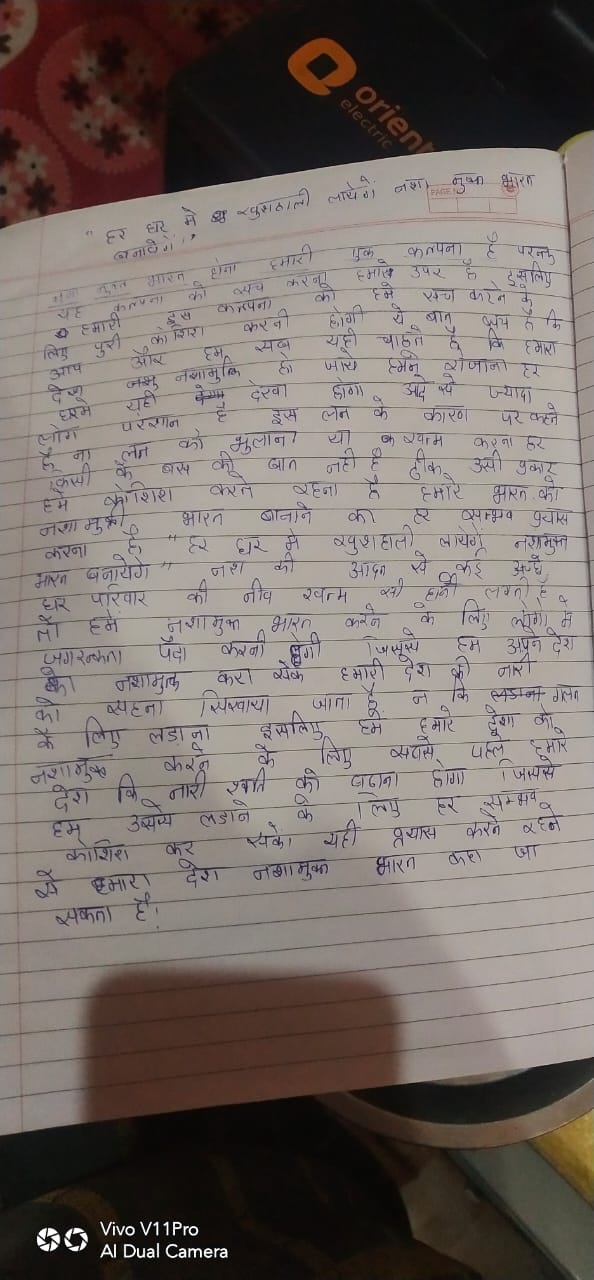 orient
electric
PAGE
"हर घर मे खुशहाली लायेगें नशा मुक्त भारत
बनायेगें"
नशा मुक्त भारत होना हमारी एक कल्पना है परन्तु
यह कल्पना को सच करना हमारे उपर है इसलिए
हमारी इस कल्पना को हमे सच करने के
लिए पुरी कोशिश करनी होगी ये बात सच है कि
आप और हम सब यही चाहते है कि हमारा
देश नशामुक्ति हो जाये हमने रोजाना हर
घरमे यही देखा होगा आदे से ज्यादा
लोग परेशान है इस लत के कारण पर कहते
है ना लत को भुलाना या खत्म करना हर
किसी के बस की बात नही है ठीक उसी प्रकार
हमे कोशिश करते रहना है हमारे भारत को
नशामुक्ती भारत बानाने का हर सम्भव प्रयास
करना है, "हर घर मे खुशहाली लायेगें नशामुक्त
भारत बनायेगें" नशे की आदत से कई अच्छे
घर परिवार की नीव खत्म सी होने लगती है
तो हमे नशामुक्त भारत करने के लिए लोगो मे
जगरुकता पैदा करनी होगी जिससे हम अपने देश
को नशामुक्त करा सके हमारी देश की नारी
को सहना सिखाया जाता है न कि गलत
के लिए लडाना इसलिए हमे हमारे देश को
नशामुक्त करने के लिए सबसे पहले हमारे
देश कि नारी शक्ति को बढाना होगा जिससे
हम उससे लडाने के लिए हर सम्भव
कोशिश कर सके। यही प्रयास करते रहने
से हमारा देश नशामुक्त भारत कहा जा
सकता है।
Vivo V11Pro
AI Dual Camera